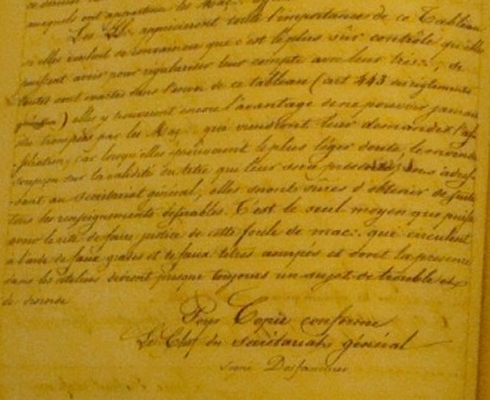 auxquels ont
Les LL. apprécieront toute l'importance de ce Tableau
si elles veulent se convaincre que c'est le plus sûr contrôle qu'elles
puissent avoir pour régulariser leur compte avec leur très.: de
toutes cont inscrites dans l'envoi de ce tableau (art 443 du règlement
) elles y trouveront encore l'avantage de ne pouvoir jamais
être trompées par les Maç. qui viendront leur demander l'af
filiation, car lorsqu'elles éprouveront le plus léger doute le moindre
soupçon sur la validité du titre que leur sera présenté, en s'adres
sant au secrétariat général, elles seront sures d'obtenir de suite
tous les renseignements désirables. C'est le seul moyen que puisse
avoir le rite de faire justice de cette foule de maç. qui circulent
à l'aide de faux grades et de faux titres usurpés et dont la présence
dans les ateliers devient presque toujours un sujet de trouble et
de désordre
Pour Copie conforme
Le Chef du Secrétariat général
Signé Desjardins